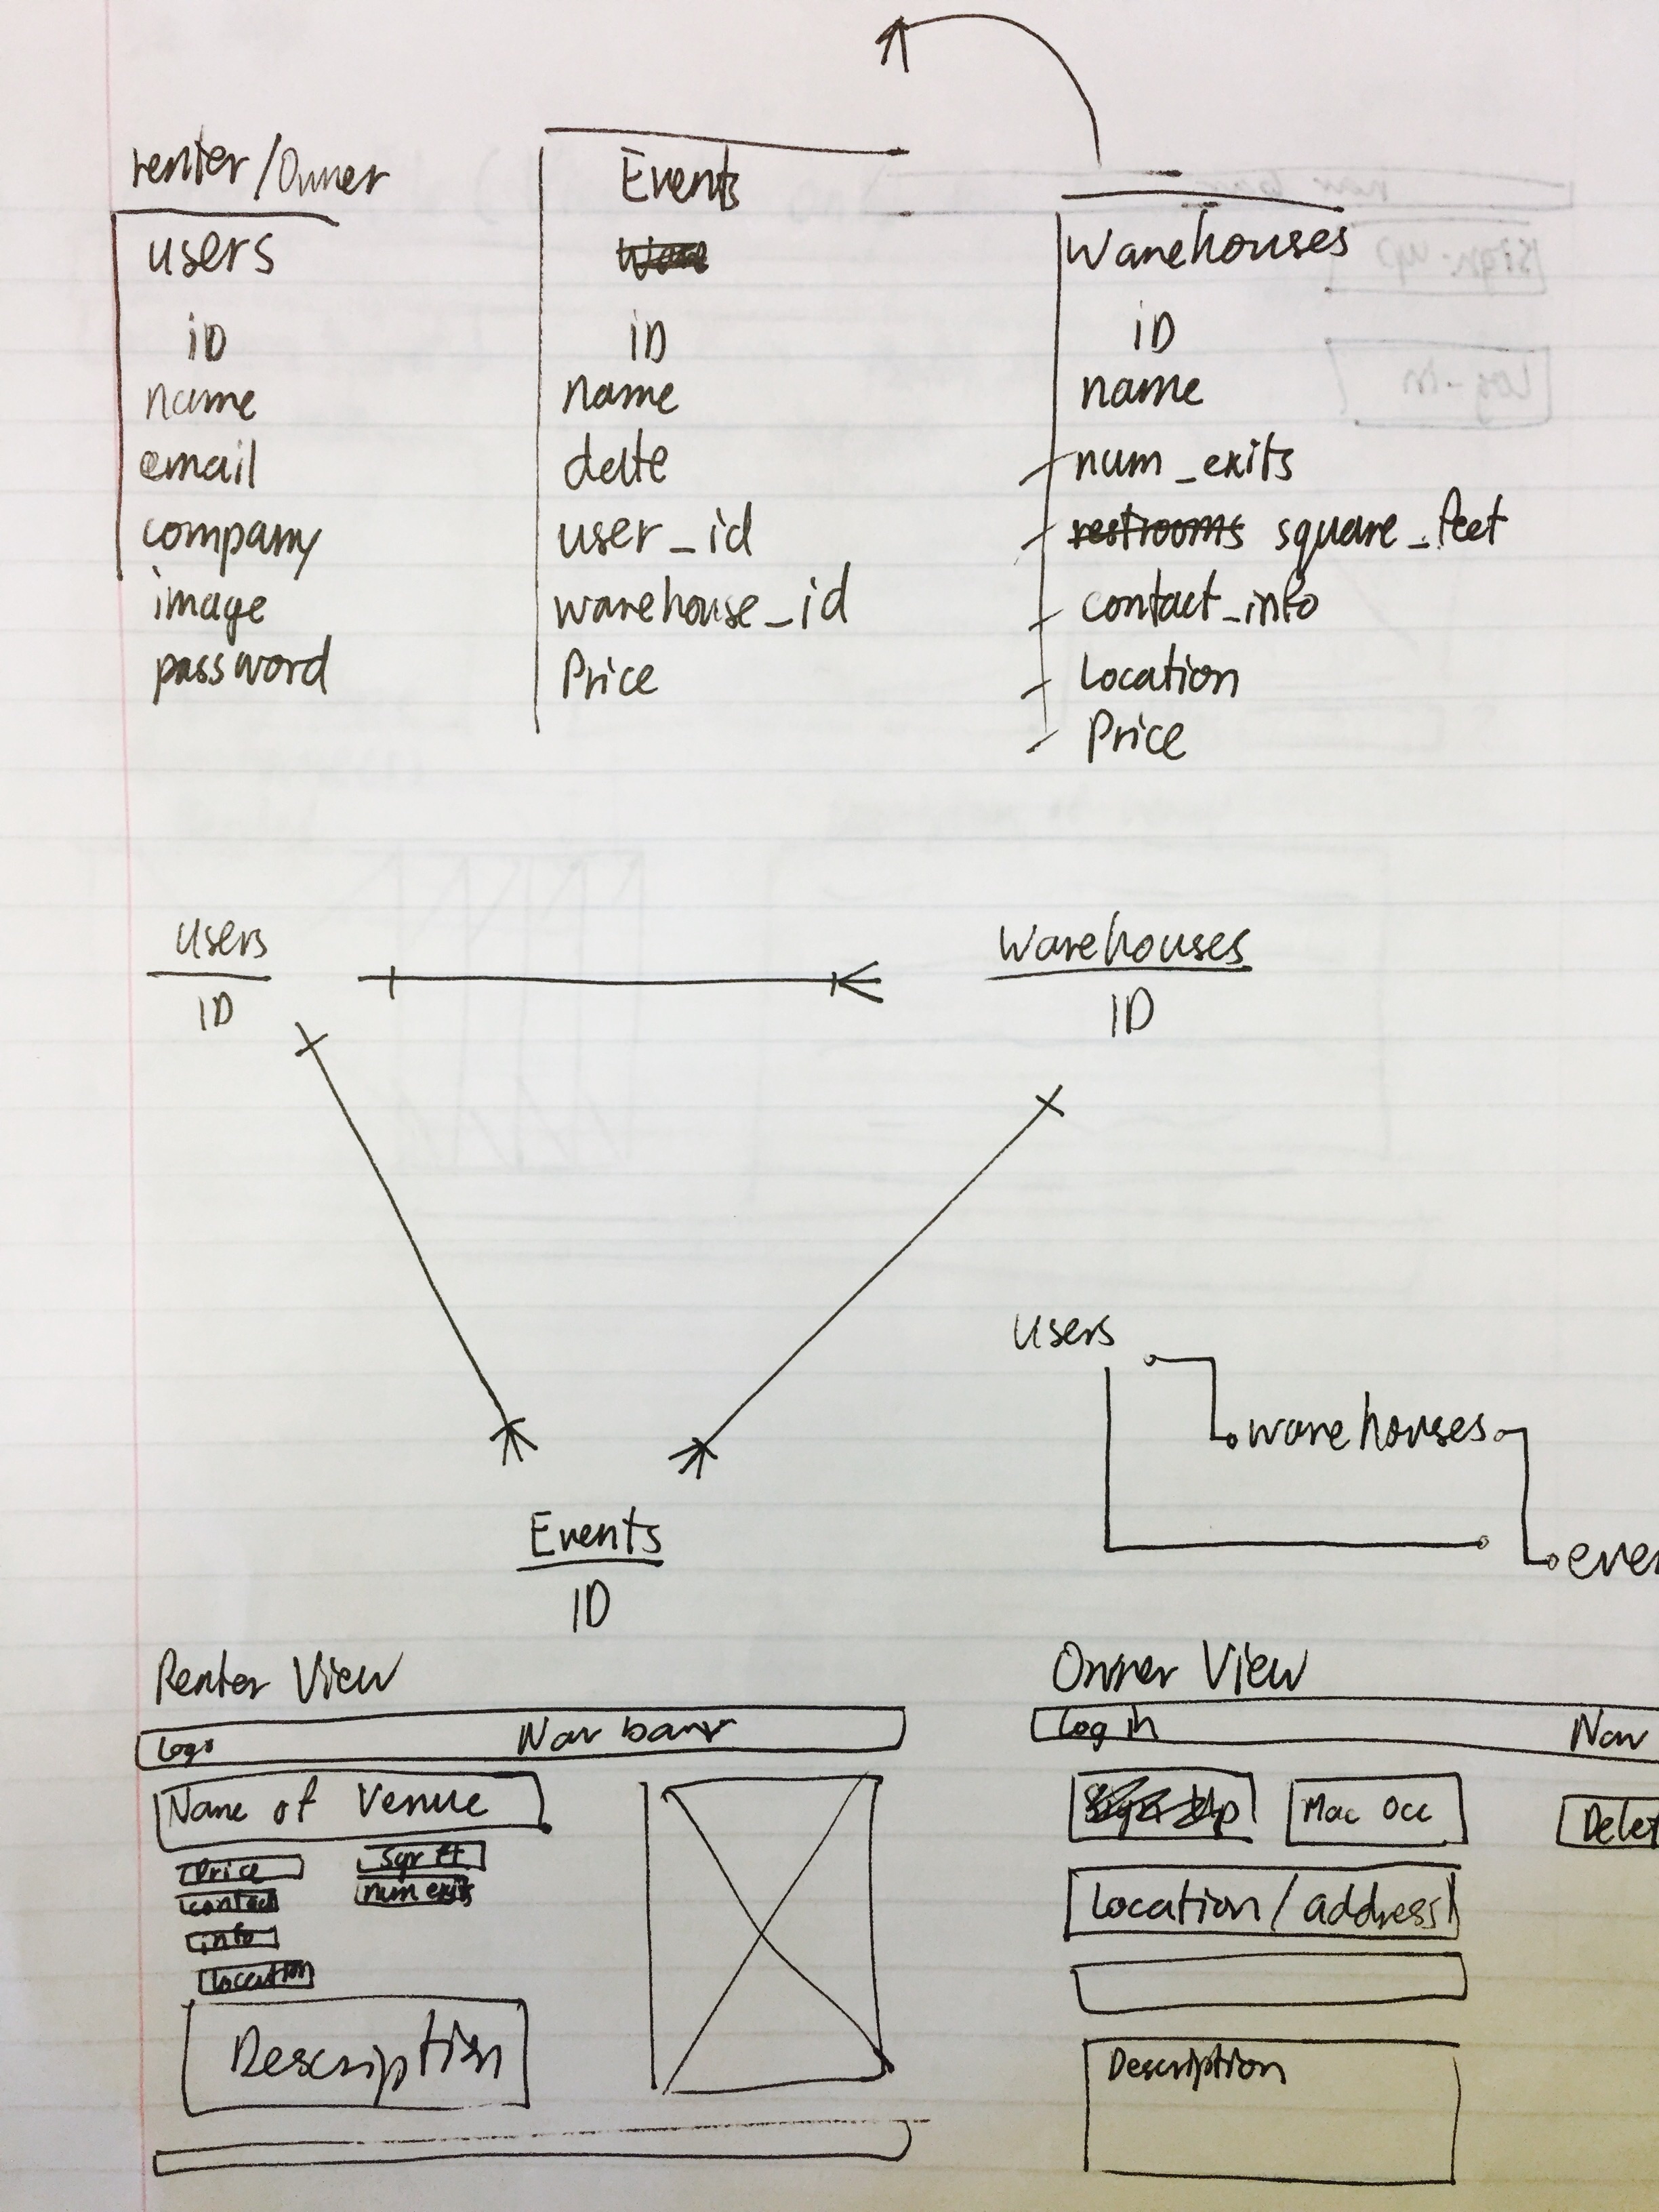 renter/Owner
users
iD
name
email
company
image
password
Events
iD
name
date
user_id
warehouse_id
Price
Warehouses
iD
name
num_exits
restrooms square_feet
contact_info
Location
Price
users
ID
Warehouses
ID
Events
ID
users
warehouses
eve
Renter View
Logo
Nav bar
Name of Venue
Price
Sqr ft
contact
num exits
info
Location
Description
Owner View
Log in
Nav
Sign Up
Max Occ
Delet
Location/address
Description
nav bar
Sign-up
Log-in